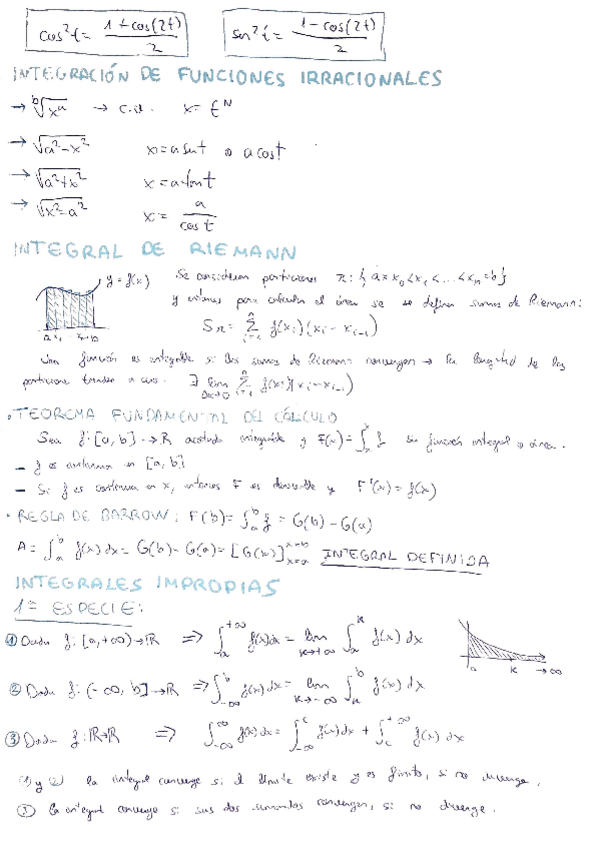 cos²t = (1+cos(2t))/2   sen²t = (1-cos(2t))/2
INTEGRACIÓN DE FUNCIONES IRRACIONALES
→ ᵇ√xᵃ → c.v. x = tᴺ
→ √a²-x²   x = a sent o a cost
→ √a²+x²   x = a tant
→ √x²-a²   x = a/cost
INTEGRAL DE RIEMANN
y = f(x)   Se consideran particiones π: { a = x₀ < x₁ < ... < xₙ = b}
y entonces para calcular el área se se definen sumas de Riemann:
Sπ = Σⁿᵢ₌₁ f(xᵢ)(xᵢ - xᵢ₋₁)
Una función es integrable si las sumas de Riemann convergen → la longitud de las
particiones tienden a cero. ∃ lim Δx→0 Σⁿᵢ₌₁ f(xᵢ)(xᵢ - xᵢ₋₁)
· TEOREMA FUNDAMENTAL DEL CÁLCULO
Sea f: [a, b] → R acotada integrable y F(x) = ∫ₐˣ f su función integral o área.
- f es continua en [a, b]
- Si f es continua en x, entonces F es derivable y F'(x) = f(x)
· REGLA DE BARROW: F(b) = ∫ₐᵇ f = G(b) - G(a)
A = ∫ₐᵇ f(x) dx = G(b) - G(a) = [G(x)] x=b x=a INTEGRAL DEFINIDA
INTEGRALES IMPROPIAS
1ª ESPECIE:
① Dada f: [a, +∞) → R ⇒ ∫ₐ^+∞ f(x) dx = lim k→+∞ ∫ₐᵏ f(x) dx
a k → ∞
② Dada f: (-∞, b] → R ⇒ ∫₋∞ᵇ f(x) dx = lim k→-∞ ∫ₖᵇ f(x) dx
③ Dada f: R→R ⇒ ∫₋∞^∞ f(x) dx = ∫₋∞ᶜ f(x) dx + ∫꜀^+∞ f(x) dx
① y ② la integral converge si el límite existe y es finito, si no diverge.
③ la integral converge si sus dos sumandos convergen, si no diverge.